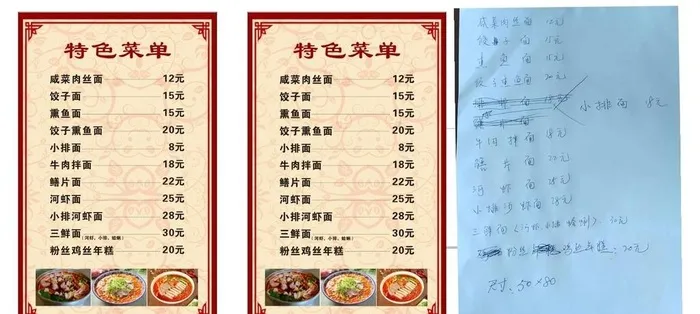 特色菜单
咸菜肉丝面 12元
饺子面 15元
熏鱼面 15元
饺子熏鱼面 20元
小排面 8元
牛肉拌面 18元
鳝片面 22元
河虾面 25元
小排河虾面 28元
三鲜面 30元
粉丝鸡丝年糕 20元
特色菜单
咸菜肉丝面 12元
饺子面 15元
熏鱼面 15元
饺子熏鱼面 20元
小排面 8元
牛肉拌面 18元
鳝片面 22元
河虾面 25元
小排河虾面 28元
三鲜面 30元
粉丝鸡丝年糕 20元
咸菜肉丝面 12元
饺子面 15元
熏鱼面 15元
饺子熏鱼面 20元
小排面 8元
牛肉拌面 18元
鳝片面 22元
河虾面 25元
小排河虾面 28元
三鲜面 30元
粉丝鸡丝年糕 20元
尺寸: 50×80